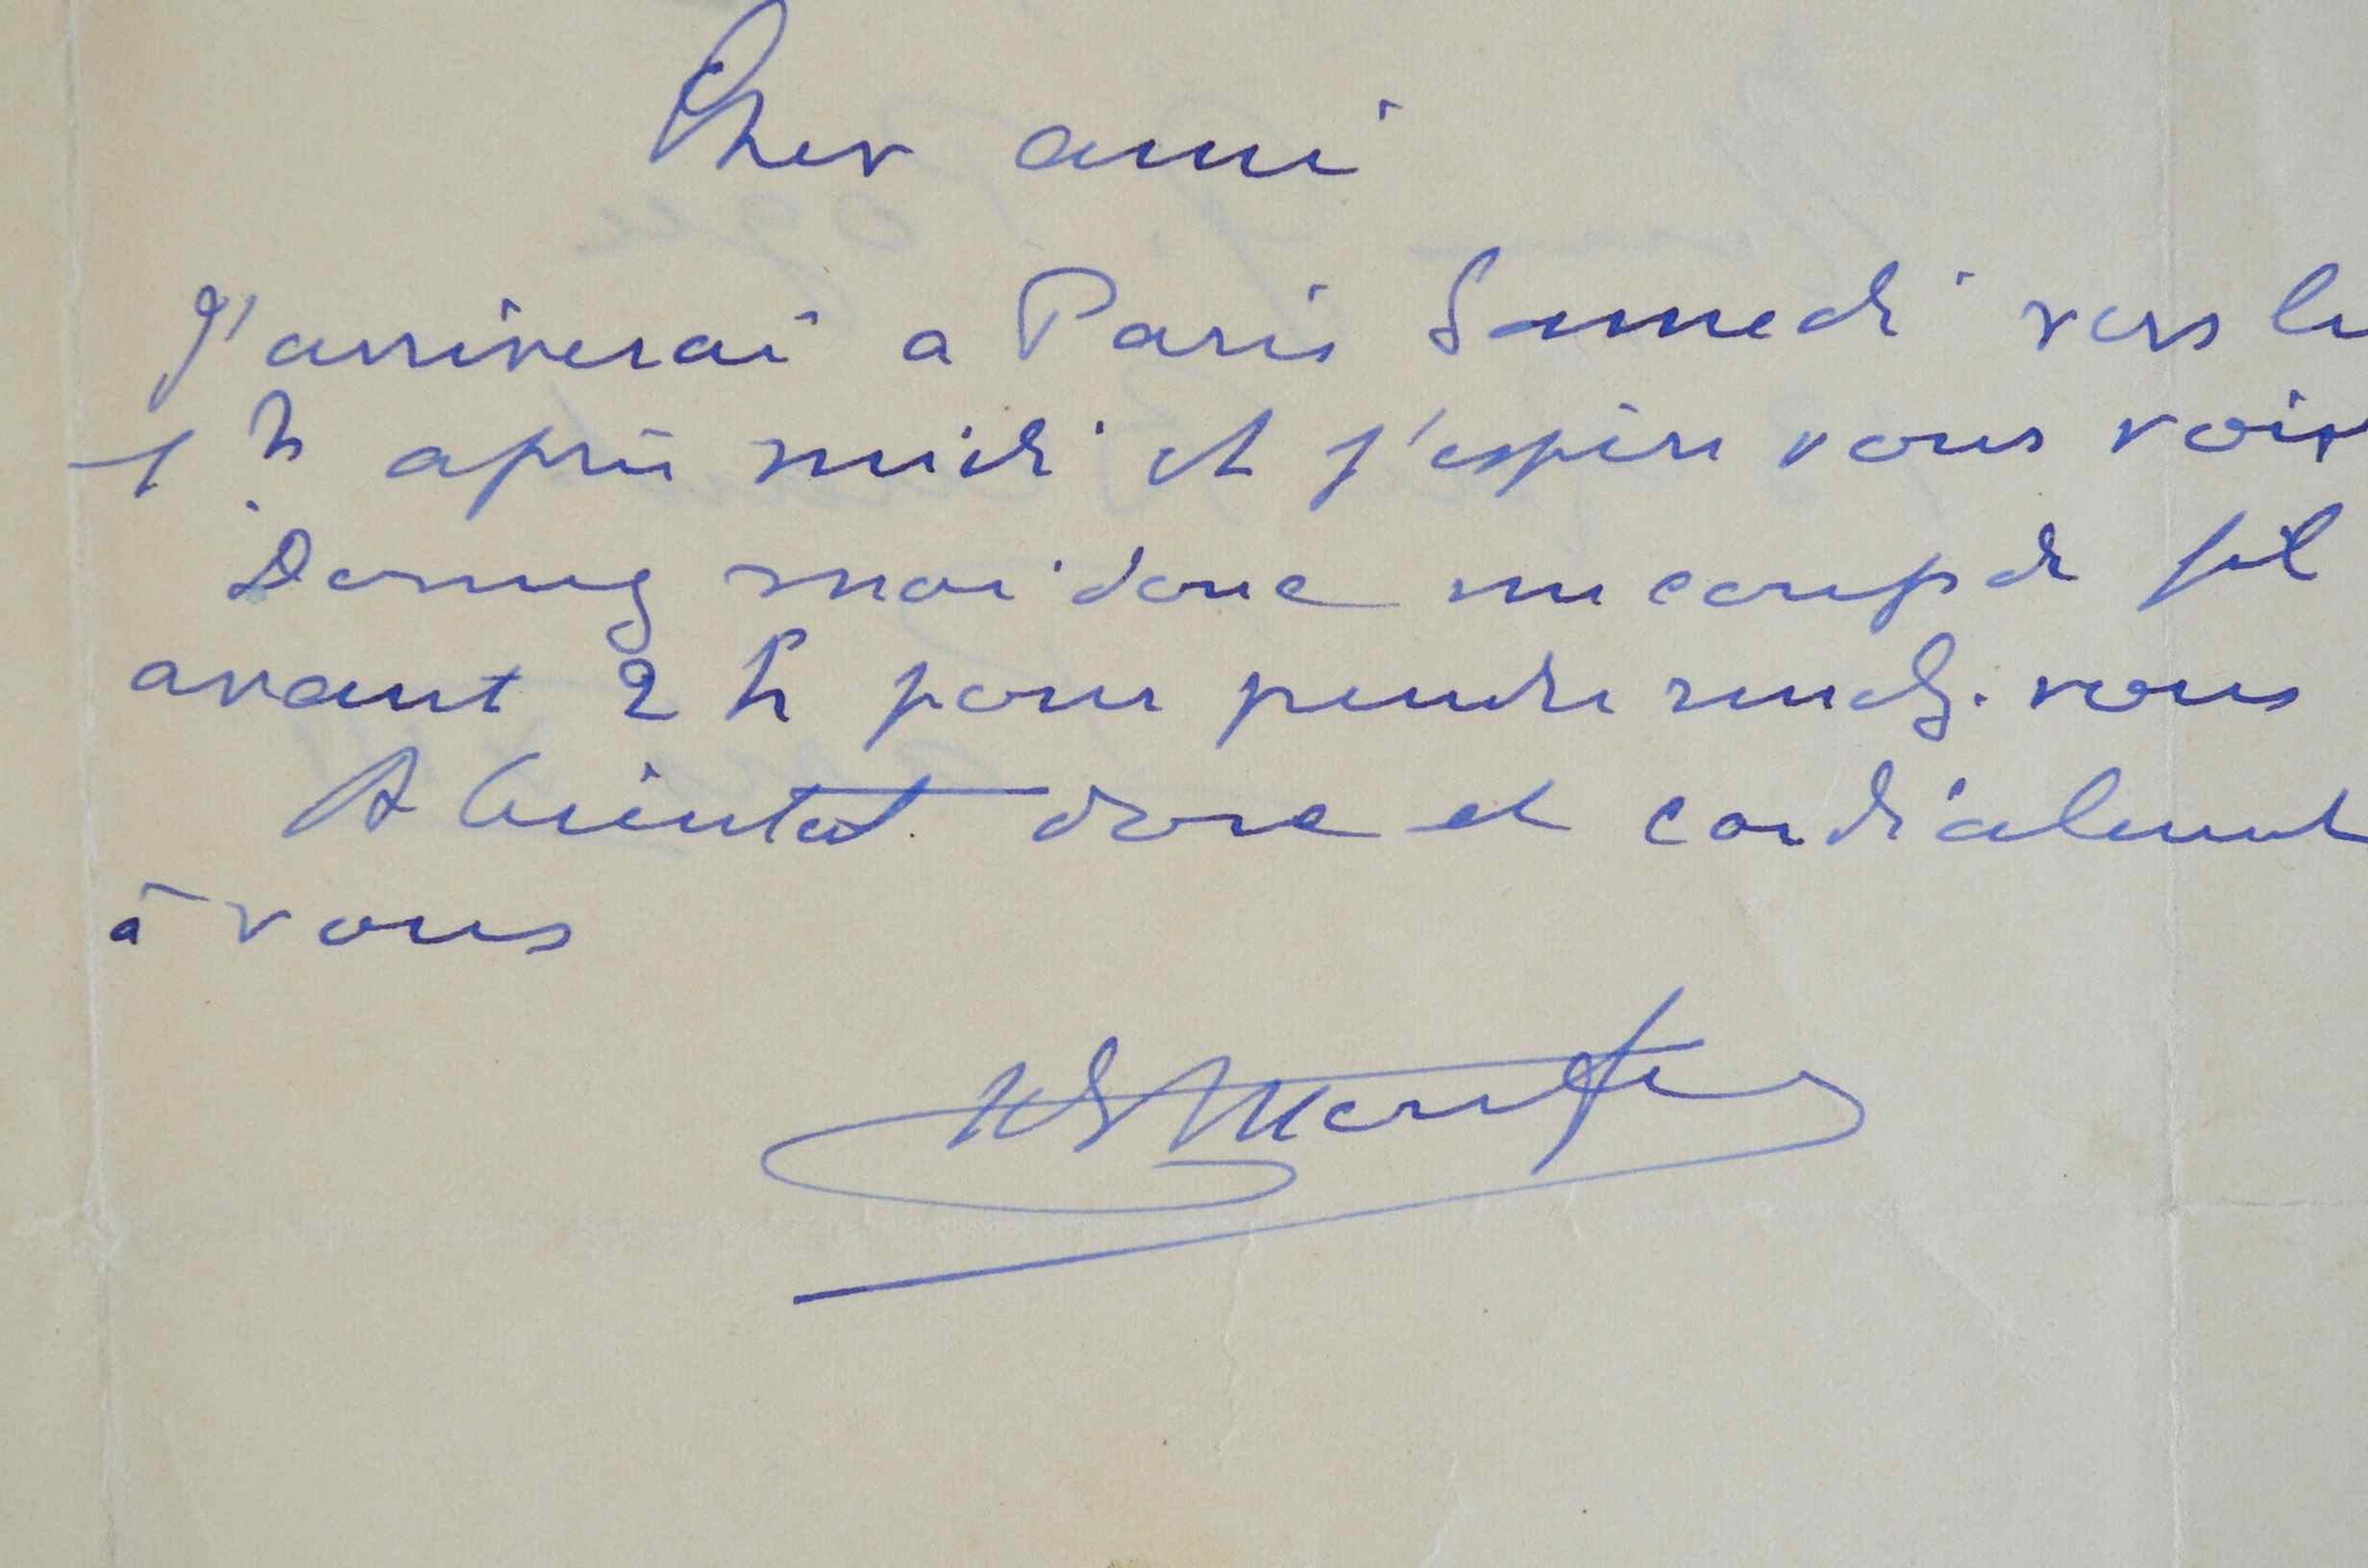 Cher ami
J'arriverai a Paris Samedi vers le
1 h après midi et j'espère vous voir
Donnez moi donc un coup de fil
avant 2 h pour prendre rendz. vous
A bientot donc et cordialement
à vous